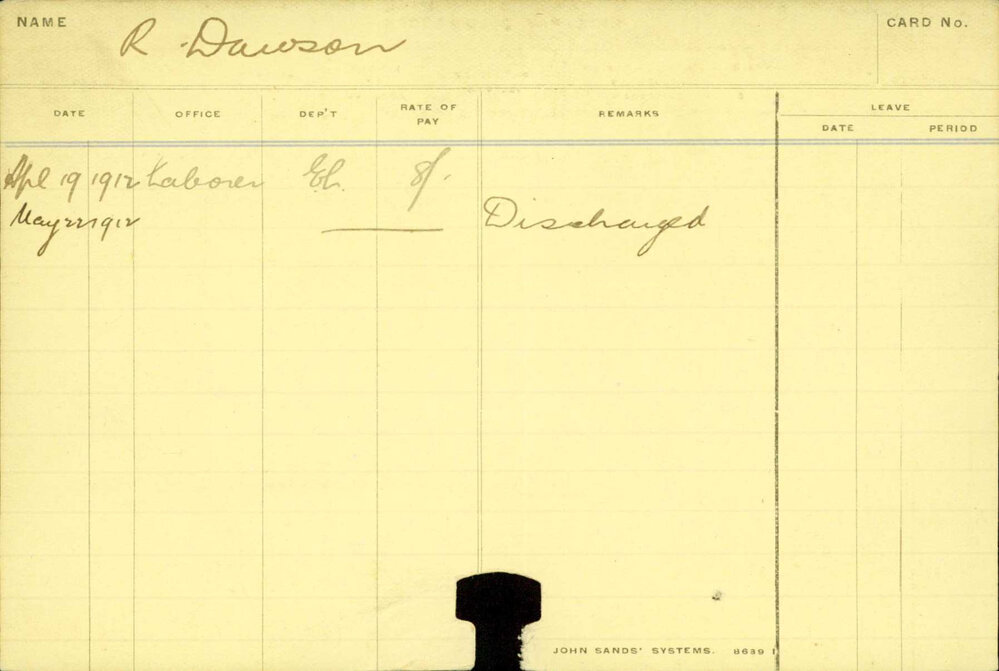 NAME R Dawson CARD No.
DATE OFFICE DEP'T RATE OF PAY REMARKS LEAVE
DATE PERIOD
Apl 19 1912 Laborer 8/.
May 22 1912 Discharged
JOHN SANDS' SYSTEMS. 8639